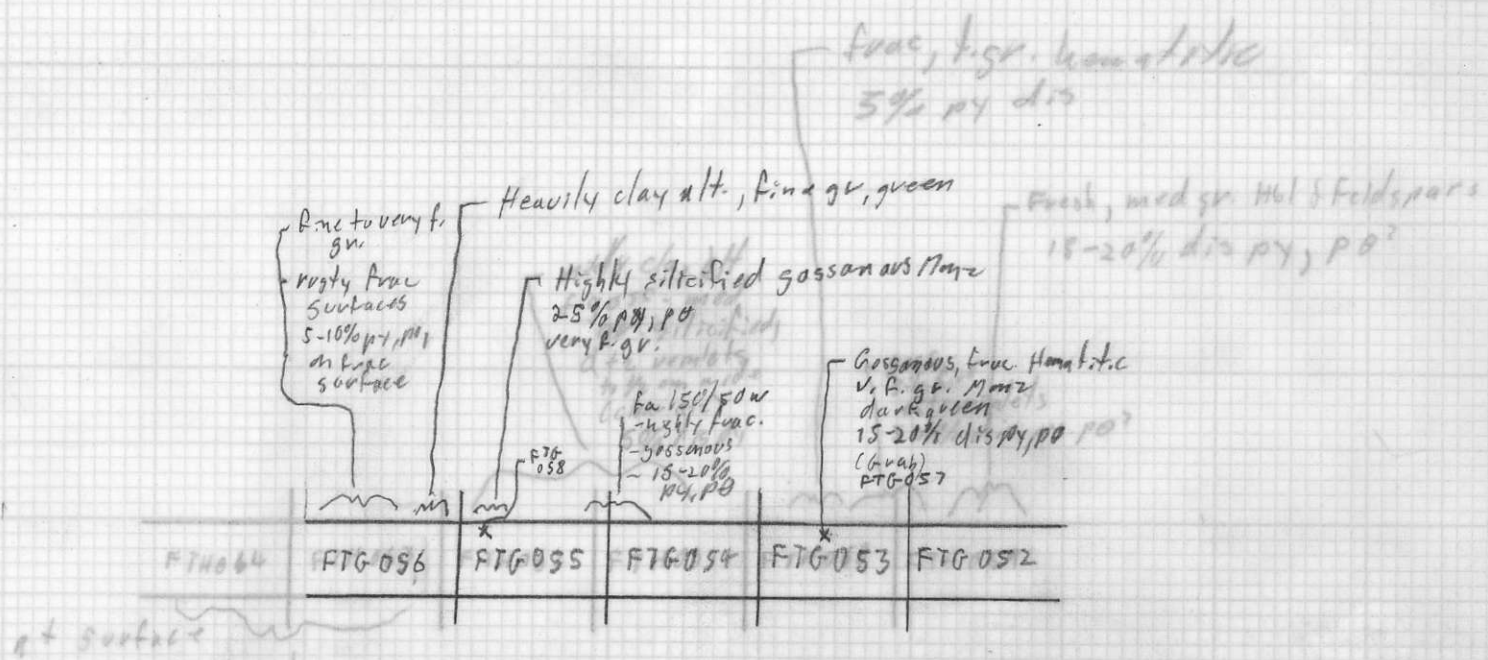 frac, f.gr. hematitic
5% py dis
Heavily clay alt., fine gr, green
Fresh, med gr. Hbl & Feldspars
15-20% dis py, pθ?
fine to very f.
gr.
rusty frac
surfaces
5-10% py, pθ,
on frac
surface
Highly silicified gossanous Monz
2-5% py, pθ
very f. gr.
150/50W
-highly frac.
-gossanous
- 15-20%
py, pθ
FTG
058
Gossanous, frac. Hematitic
v. f. gr. Monz
dark green
15-20% dis py, pθ
(Grab)
FTG057
FTG056
FTG055
FTG054
FTG053
FTG052
surface